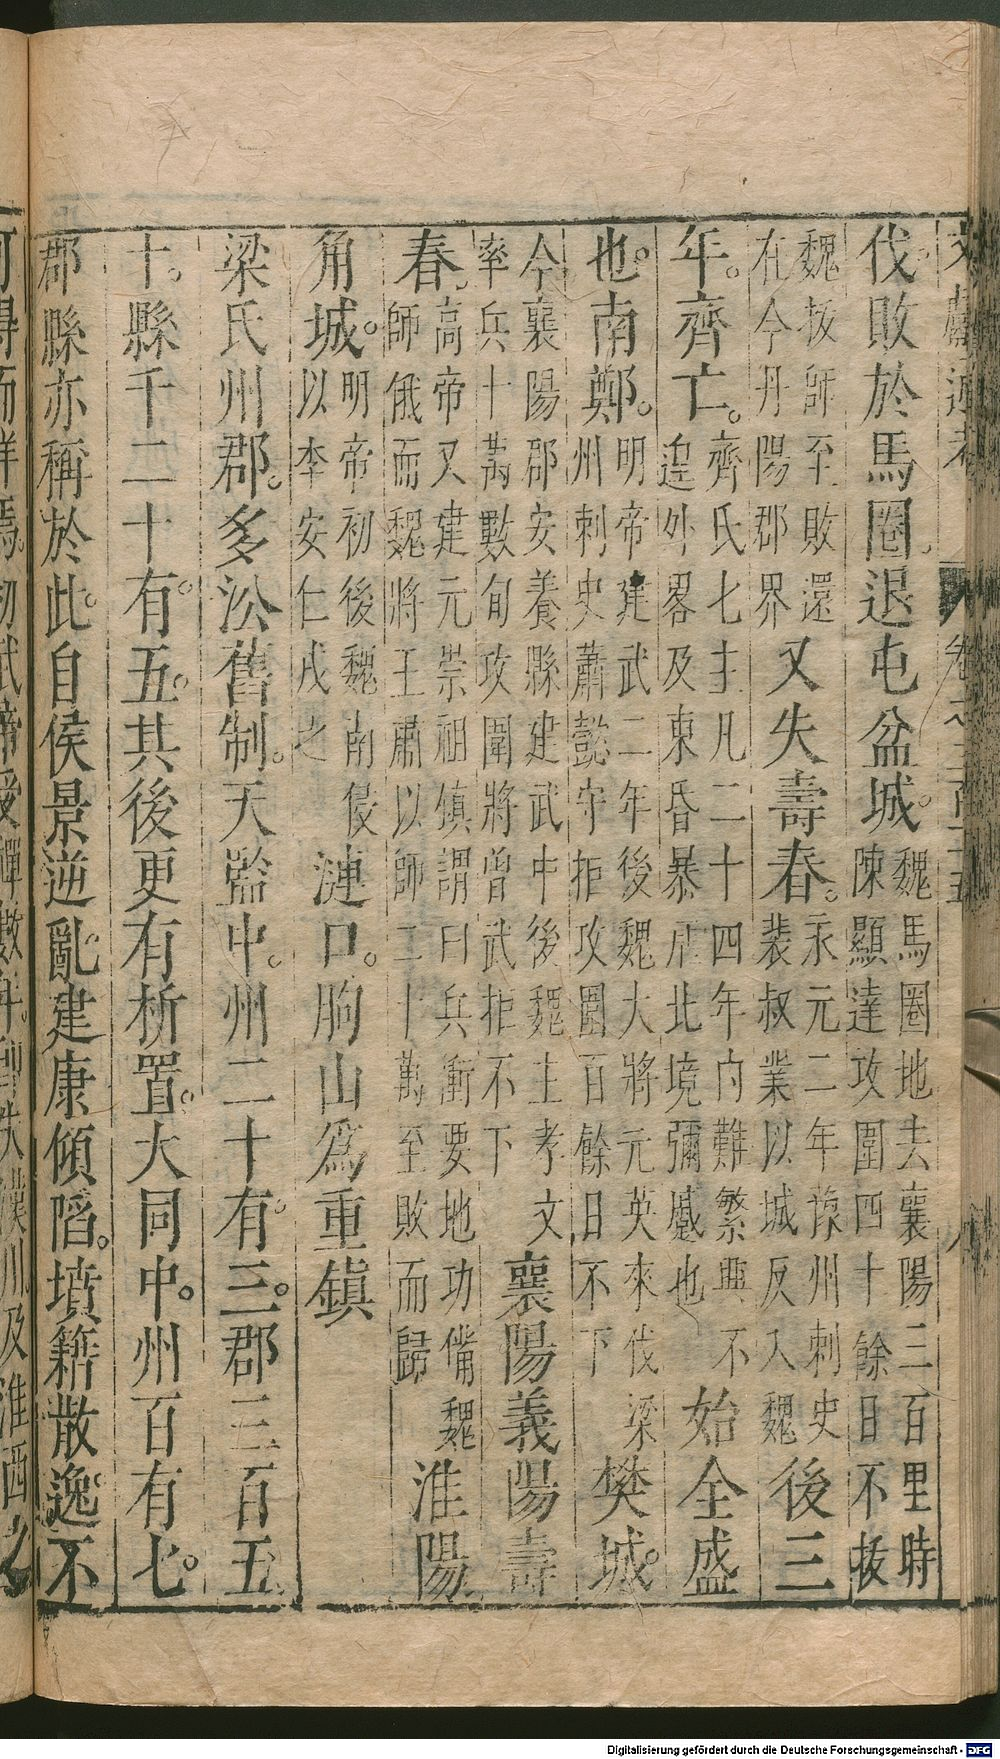 文獻通考 卷之三百十五 八
伐敗於馬圈。退屯盆城。魏馬圈地去襄陽三百里時
陳顯達攻圍四十餘日不拔
魏拔師至敗還
在今丹陽郡界又失壽春。永元二年豫州刺史
裴叔業以城反入魏後三
年。齊亡。齊氏七主凡二十四年內難繁興不
遑外畧及東昏暴虐北境彌蹙也始全盛
也。南鄭。明帝建武二年後魏大將元英來伐梁
州刺史蕭懿守拒攻圍百餘日不下樊城。
今襄陽郡安養縣建武中後魏主孝文
率兵十萬數旬攻圍將曾武拒不下襄陽義陽壽
春。高帝又建元崇祖鎮謂曰兵衝要地功備魏
師俄而魏將王肅以師二十萬至敗而歸淮陽
角城。明帝初後魏南侵
以李安仁戍之漣口。朐山為重鎮
梁氏州郡。多㳂舊制。天監中。州二十有三。郡三百五
十。縣千二十有五。其後更有析置。大同中。州百有七。
郡縣亦稱於此。自侯景逆亂。建康傾陷。墳籍散逸。不
可得而詳焉。初武帝受禪數年。即失漢川。及淮西之
Digitalisierung gefördert durch die Deutsche Forschungsgemeinschaft - DFG